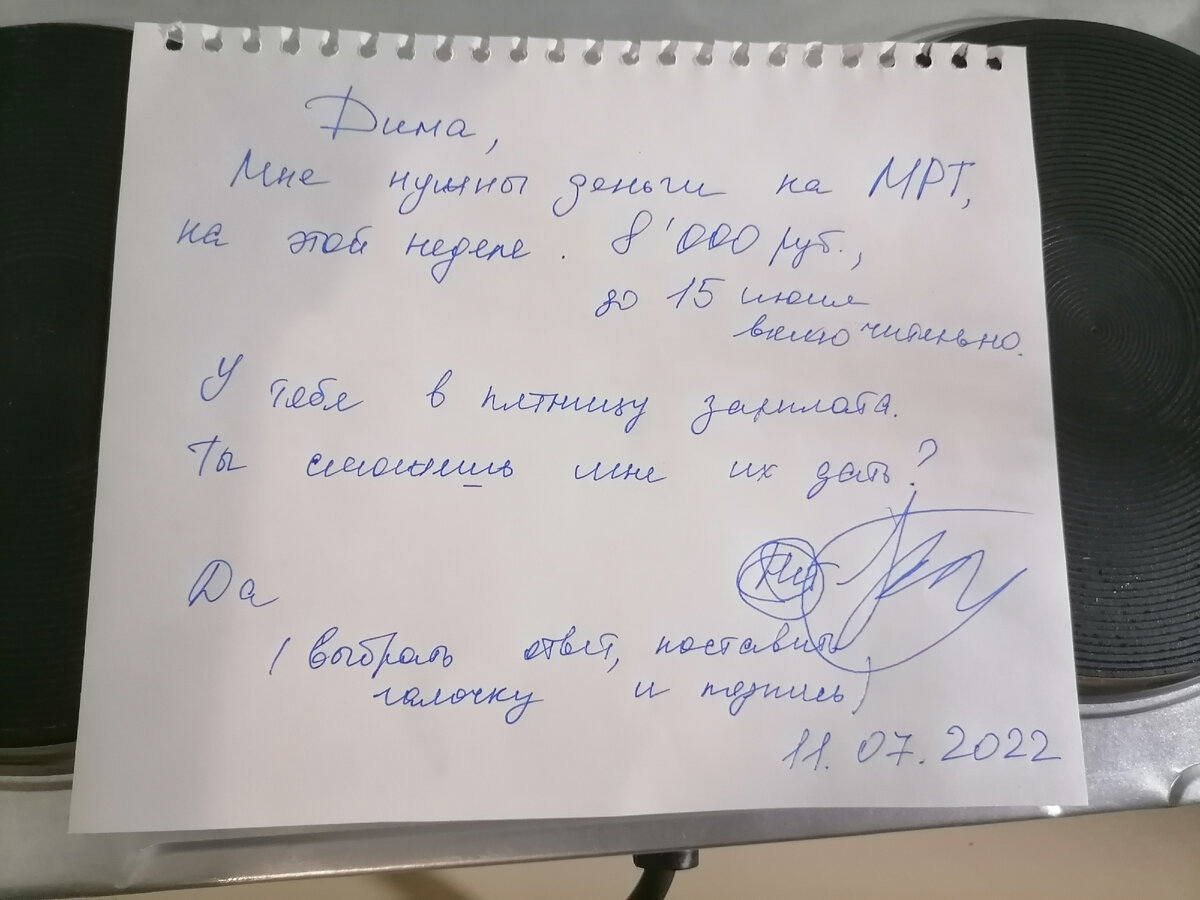 Дима,
Мне нужны деньги на МРТ,
на этой неделе. 8'000 руб.,
до 15 июля
включительно.
У тебя в пятницу зарплата.
Ты сможешь мне их дать?
Да Нет
(выбрать ответ, поставить
галочку и подпись)
11.07.2022